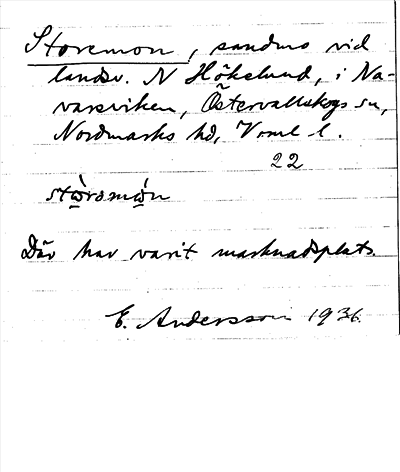 Storemon, sandmo vid
landsv. N Hökelund, i Na-
varsviken, Östervallskogs sn,
Nordmarks hd, Vrml. l.
22
stὼrəmὼn
Där har varit marknadsplats.
E. Andersson 1936.